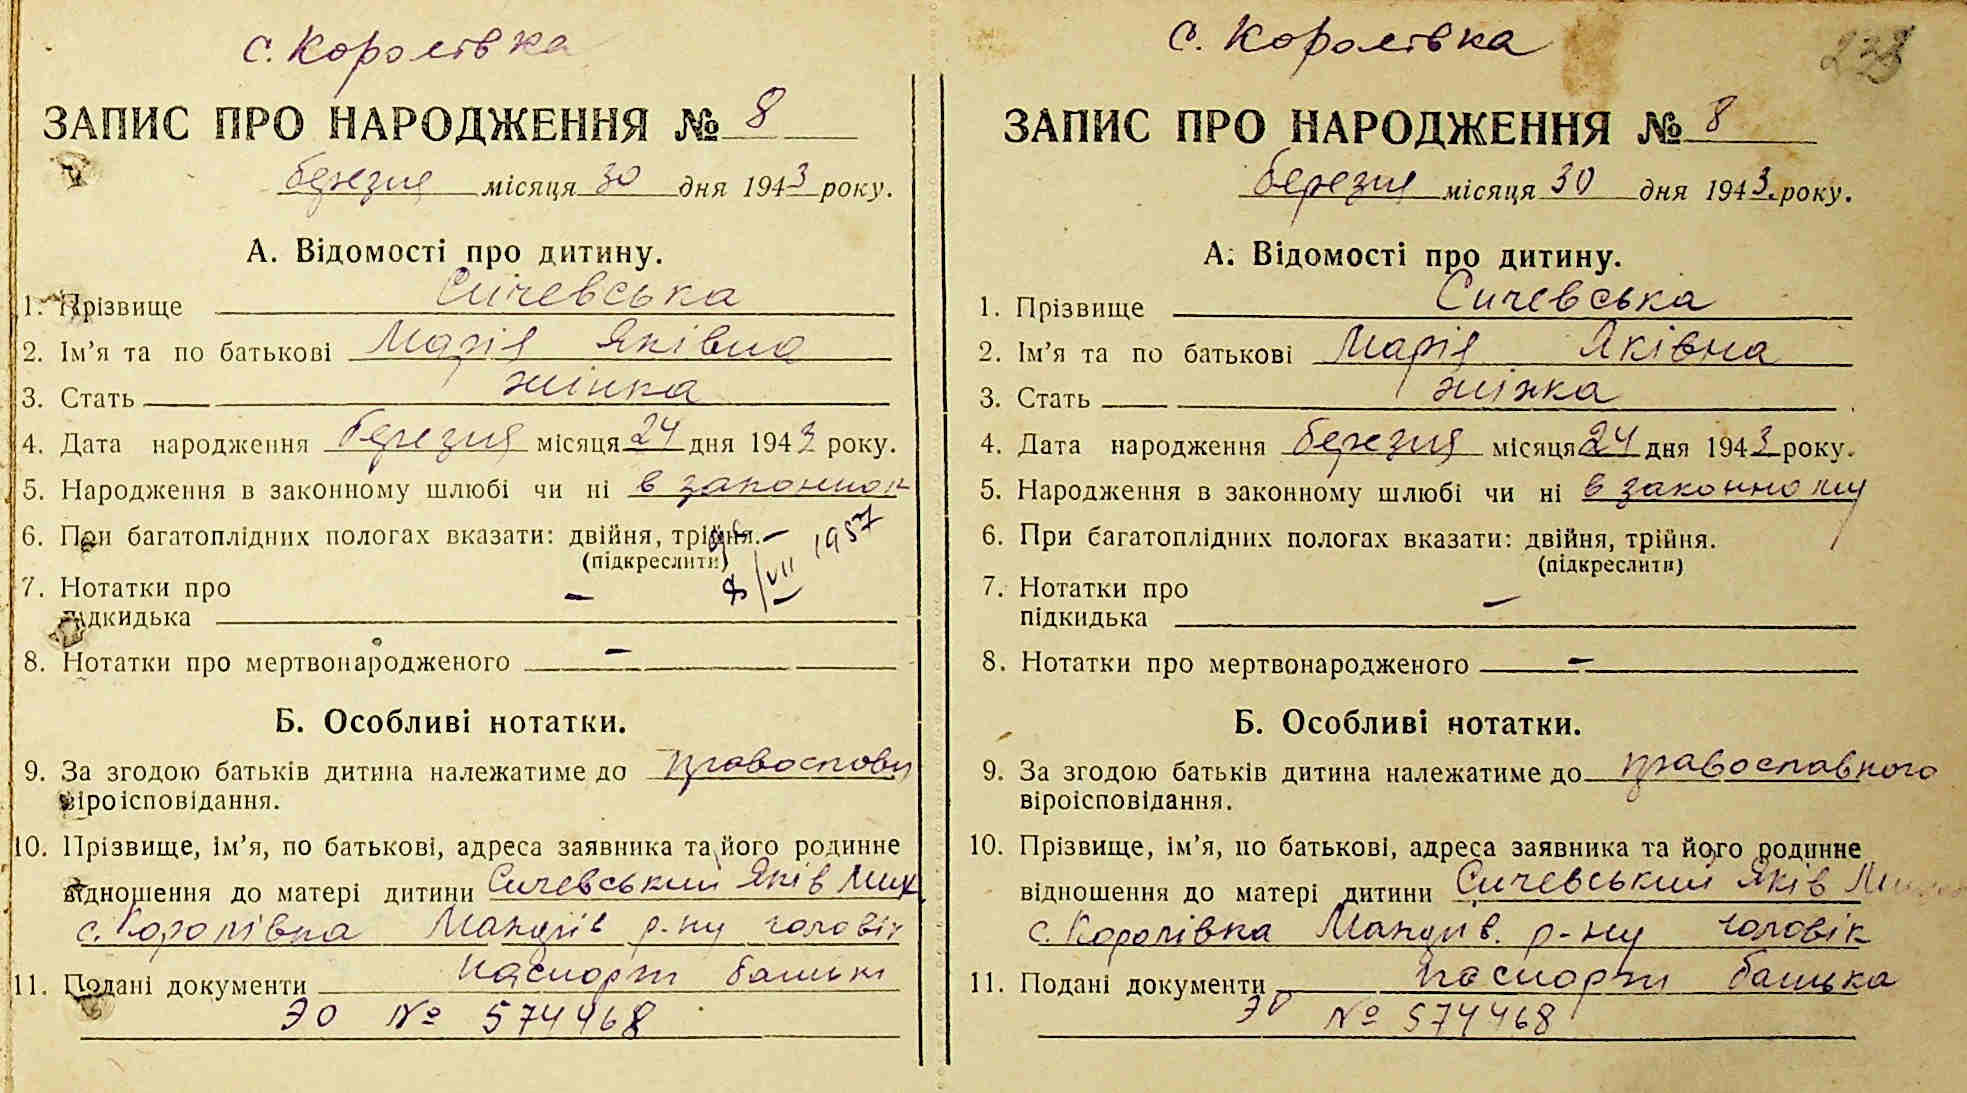 с. Королівка
ЗАПИС ПРО НАРОДЖЕННЯ № 8
березня місяця 30 дня 1943 року.
А. Відомості про дитину.
1. Прізвище Сичевська
2. Ім’я та по батькові Марія Яківна
3. Стать жінка
4. Дата народження березня місяця 24 дня 1943 року.
5. Народження в законному шлюбі чи ні в законном
6. При багатоплідних пологах вказати: двійня, трійня. –
(підкреслити)
8/VII 1957
7. Нотатки про
підкидька –
8. Нотатки про мертвонародженого –
Б. Особливі нотатки.
9. За згодою батьків дитина належатиме до православн
віроісповідання.
10. Прізвище, ім’я, по батькові, адреса заявника та його родинне
відношення до матері дитини Сичевський Яків Мик
с. Королівка Маньків р-ну чоловік
11. Подані документи паспорт батька
ЭО № 574468
с. Королівка
238
ЗАПИС ПРО НАРОДЖЕННЯ № 8
березня місяця 30 дня 1943 року.
А. Відомості про дитину.
1. Прізвище Сичевська
2. Ім’я та по батькові Марія Яківна
3. Стать жінка
4. Дата народження березня місяця 24 дня 1943 року.
5. Народження в законному шлюбі чи ні в законному
6. При багатоплідних пологах вказати: двійня, трійня.
(підкреслити)
7. Нотатки про
підкидька –
8. Нотатки про мертвонародженого –
Б. Особливі нотатки.
9. За згодою батьків дитина належатиме до православного
віроісповідання.
10. Прізвище, ім’я, по батькові, адреса заявника та його родинне
відношення до матері дитини Сичевський Яків
с. Королівка Маньків. р-ну чоловік
11. Подані документи паспорт батька
ЭО № 574468